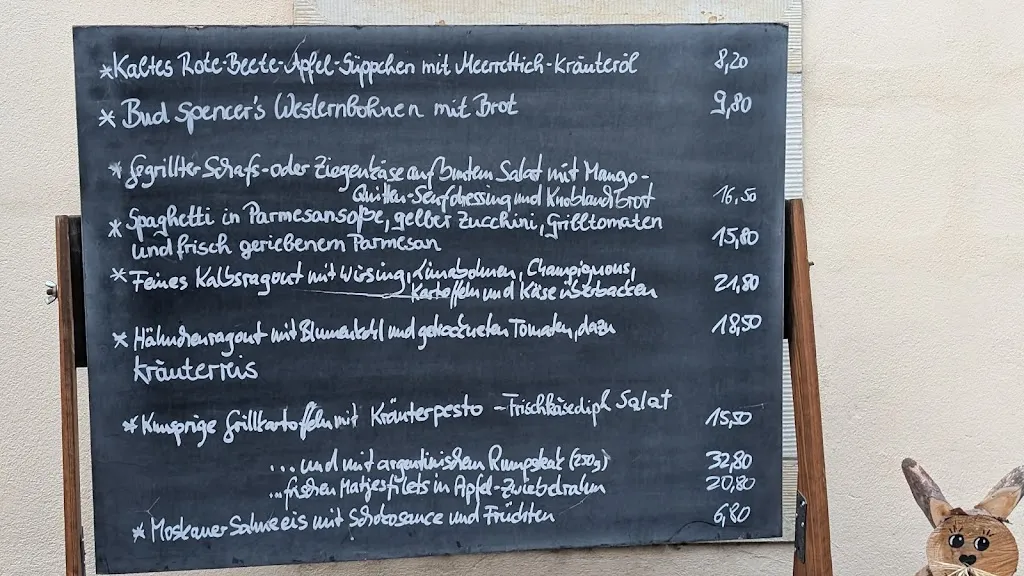 *Kaltes Rote-Beete-Apfel-Süppchen mit Meerrettich-Kräuteröl 8,20
* Bud Spencer's Westernbohnen mit Brot 9,80
* Gegrillter Schafs-oder Ziegenkäse auf buntem Salat mit Mango-
Quitten-Senfdressing und Knoblauchbrot 16,50
* Spaghetti in Parmesansoße, gelber Zucchini, Grilltomaten
und frisch geriebenem Parmesan 15,80
* Feines Kalbsragout mit Wirsing, Limabohnen, Champignons,
Kartoffeln und Käse überbacken 21,80
* Hähnchenragout mit Blumenkohl und getrockneten Tomaten, dazu 18,50
Kräuterreis
* Knusprige Grillkartoffeln mit Kräuterpesto - Frischkäsedip & Salat 15,50
... und mit argentinischem Rumpsteak (250g) 32,80
... frischen Matjesfilets in Apfel-Zwiebelrahm 20,80
* Moskauer Sahneeis mit Schokosauce und Früchten 6,80